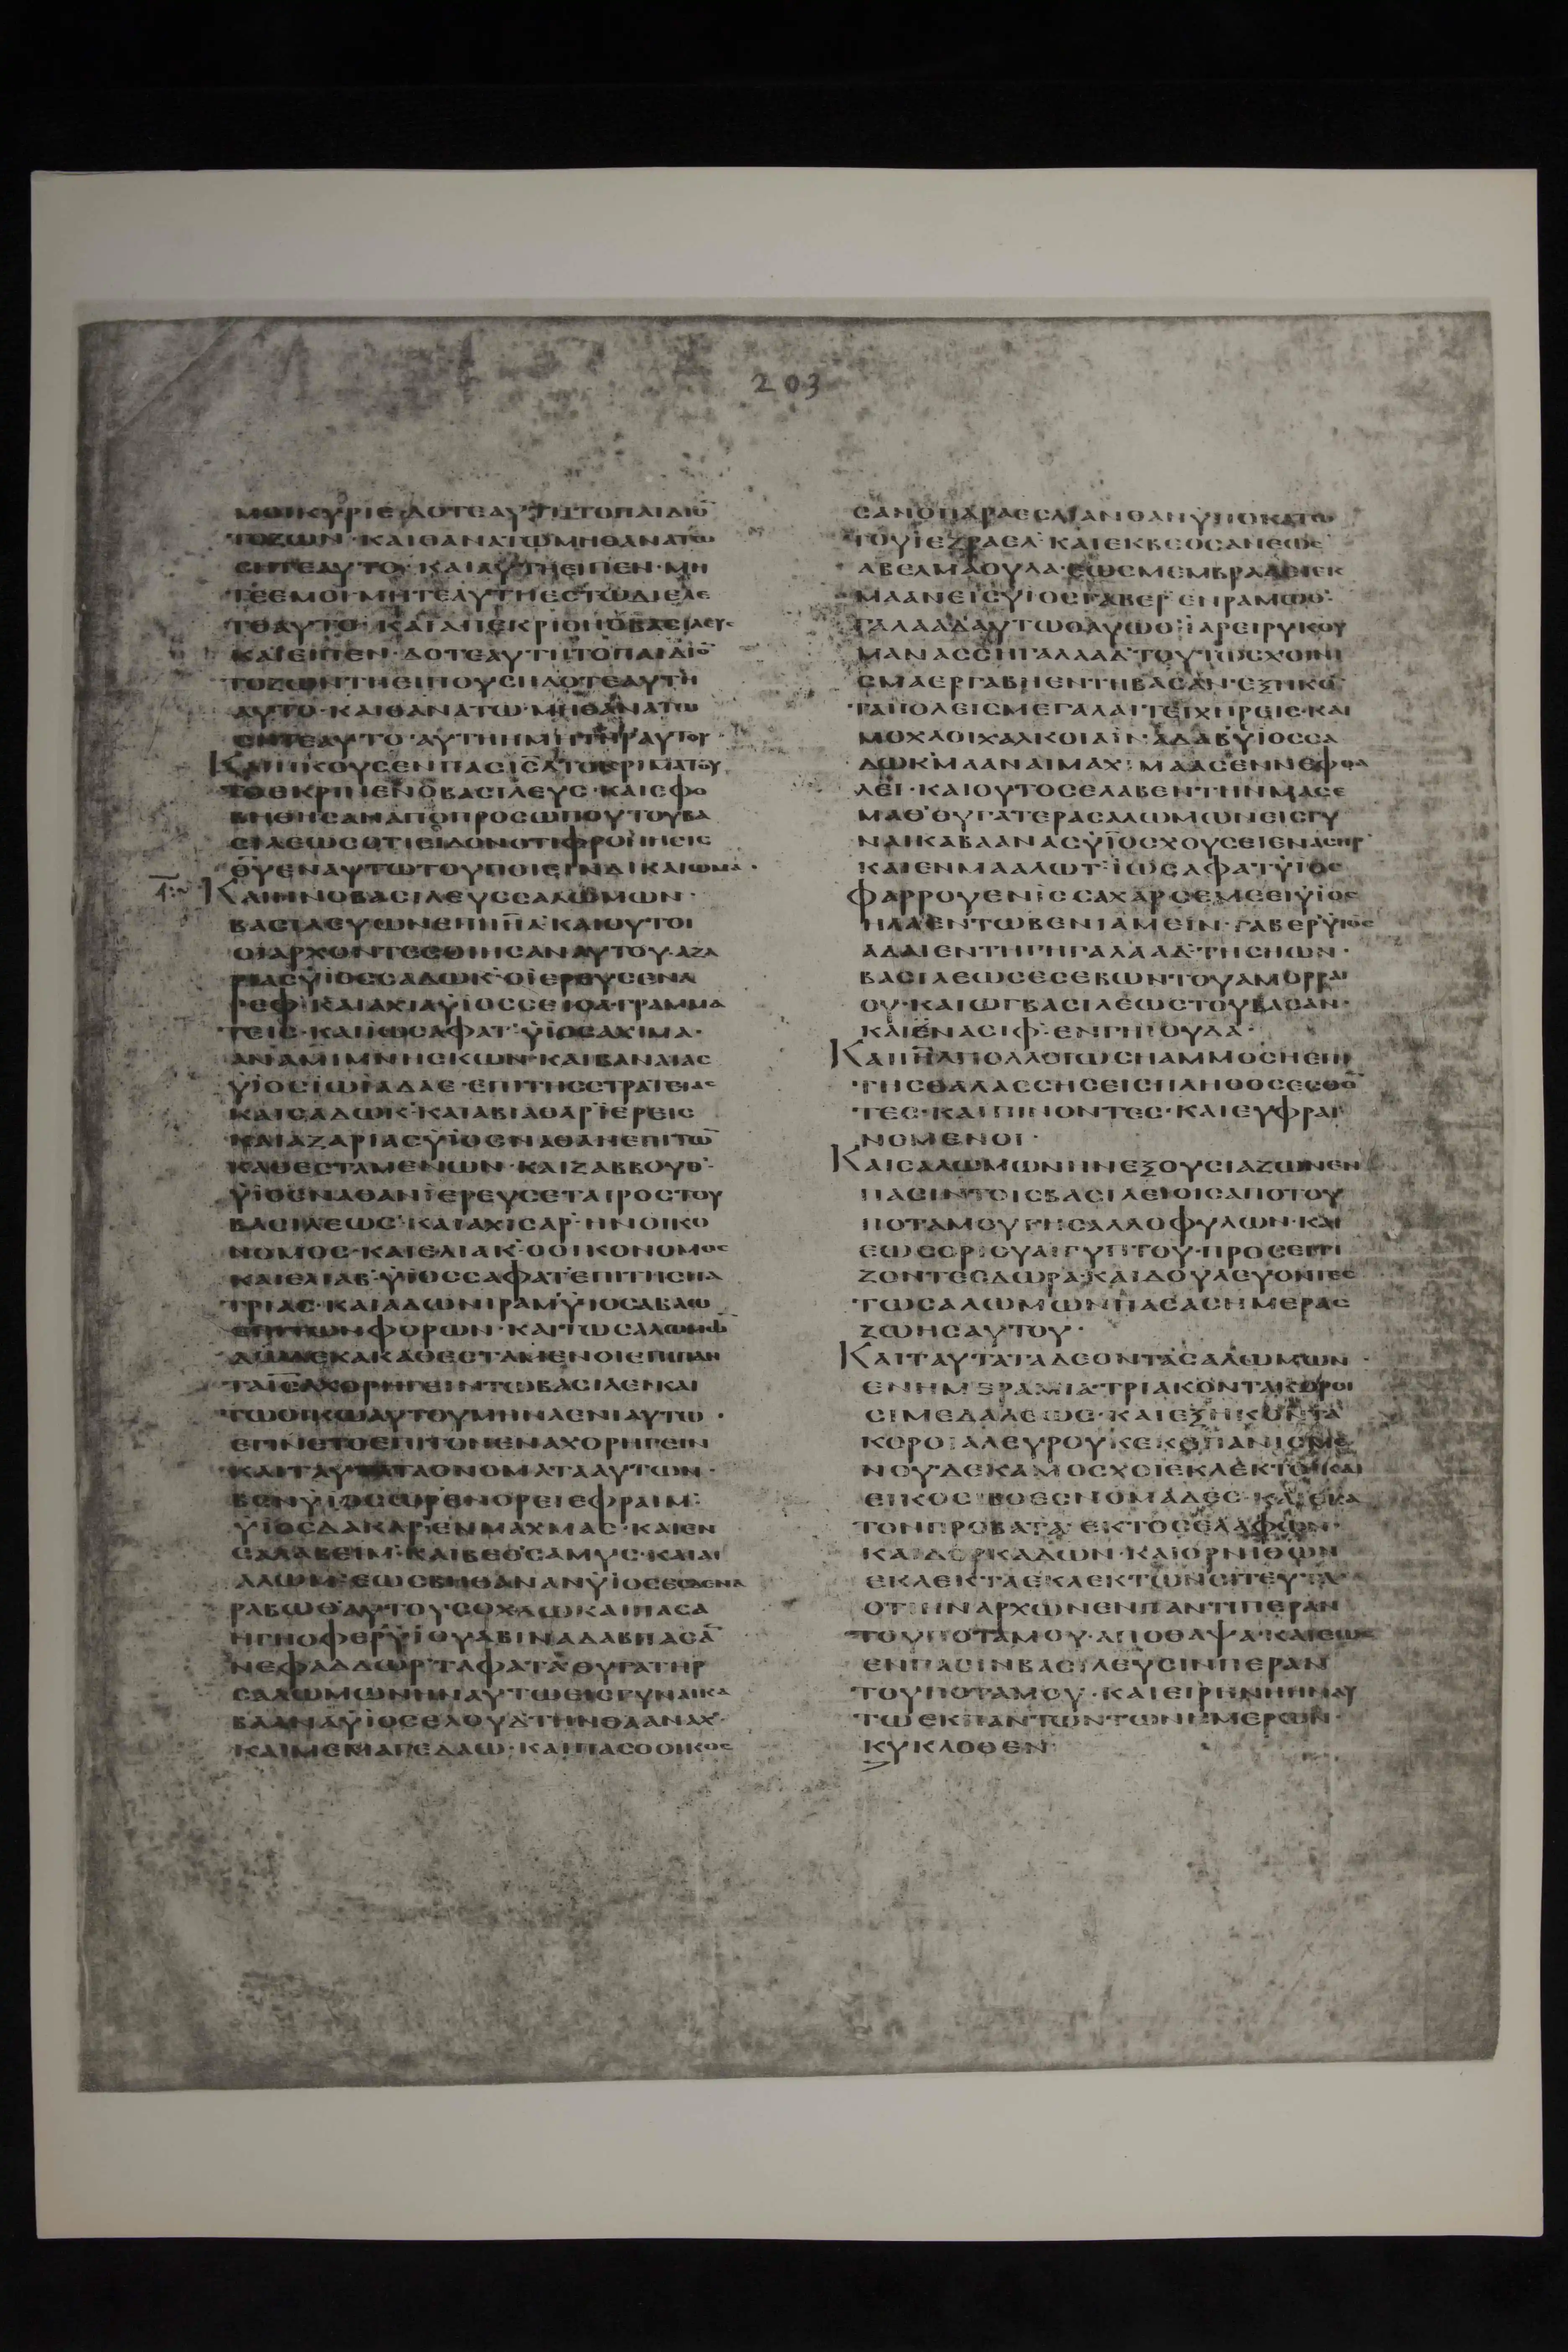 203
ΜΟΙΚΥΡΙΕΔΟΤΕΑΥΤΗΤΟΠΑΙΔΙΟ̅
ΤΟΖΩΝ·ΚΑΙΘΑΝΑΤΩΜΗΘΑΝΑΤΩ
ΣΗΤΕΑΥΤΟ·ΚΑΙΑΥΤΗΕΙΠΕΝ·ΜΗ
ΤΕΕΜΟΙΜΗΤΕΑΥΤΗΕΣΤΩΔΙΕΛΕ
ΤΕΑΥΤΟ·ΚΑΙΑΠΕΚΡΙΘΗΟΒΑΣΙΛΕΥΣ
ΚΑΙΕΙΠΕΝ·ΔΟΤΕΑΥΤΗΤΟΠΑΙΔΙΟ̅
ΤΟΖΩΝΤΗΕΙΠΟΥΣΗΔΟΤΕΑΥΤΗ
ΑΥΤΟ·ΚΑΙΘΑΝΑΤΩ·ΜΗΘΑΝΑΤΩ
ΣΗΤΕΑΥΤΟ·ΑΥΤΗΗΜΗΤΗΡΑΥΤΟΥ·
ΚΑΙΗΚΟΥΣΕΝΠΑΣΙΣ̅Λ̅ΤΟΚΡΙΜΑΤΟΥ
ΤΟΕΚΡΙΝΕΝΟΒΑΣΙΛΕΥΣ·ΚΑΙΕΦΟ
ΒΗΘΗΣΑΝΑΠΟΠΡΟΣΩΠΟΥΤΟΥΒΑ
ΣΙΛΕΩΣΟΤΙΕΙΔΟΝΟΤΙΦΡΟΝΗΣΙΣ
Θ̅Υ̅ΕΝΑΥΤΩΤΟΥΠΟΙΕΙΝΔΙΚΑΙΩΜΑ·
ΚΑΙΗΝΟΒΑΣΙΛΕΥΣΣΑΛΩΜΩΝ·
ΒΑΣΙΛΕΥΩΝΕΠΙΙ̅Η̅Λ̅·ΚΑΙΟΥΤΟΙ
ΟΙΑΡΧΟΝΤΕΣΟΙΗΣΑΝΑΥΤΟΥ·ΑΖΑ
ΡΙΑΣΥΪΟΣΣΑΔΩΚ·ΟΪΕΡΕΥΣΕΝΑ
ΡΕΦ·ΚΑΙΑΧΙΑΥΪΟΣΣΕΙΟΑ·ΓΡΑΜΜΑ
ΤΕΙΣ·ΚΑΙΪΩΣΑΦΑΤ·ΥΪΟΣΑΧΙΜΑ·
ΑΝΑΜΙΜΝΗΣΚΩΝ·ΚΑΙΒΑΝΑΙΑΣ
ΥΪΟΣΪΩΪΑΔΑΕ·ΕΠΙΤΗΣΣΤΡΑΤΕΙΑΣ
ΚΑΙΣΑΔΩΚ·ΚΑΙΑΒΙΑΘΑΡΪΕΡΕΙΣ
ΚΑΙΑΖΑΡΙΑΣΥΪΟΣΝΑΘΑΝΕΠΙΤΩ̅
ΚΑΘΕΣΤΑΜΕΝΩΝ·ΚΑΙΖΑΒΒΟΥΘ·
ΥΪΟΣΝΑΘΑΝΪΕΡΕΥΣΕΤΑΙΡΟΣΤΟΥ
ΒΑΣΙΛΕΩΣ·ΚΑΙΑΧΙΣΑΡ·ΗΝΟΙΚΟ
ΝΟΜΟΣ·ΚΑΙΕΛΙΑΚ·ΟΟΙΚΟΝΟΜΟΣ
ΚΑΙΕΛΙΑΒ·ΥΪΟΣΣΑΦΑΤ·ΕΠΙΤΗΣΠΑ
ΤΡΙΑΣ·ΚΑΙΑΔΩΝΙΡΑΜ·ΥΪΟΣΑΒΑΩ
ΕΠΙΤΩΝΦΟΡΩΝ·ΚΑΙΤΩΣΑΛΩΜΩ̅
ΔΩΔΕΚΑΚΑΘΕΣΤΑΜΕΝΟΙΕΠΙΠΑΝ
ΤΑΙ̅Σ̅Λ̅ΧΟΡΗΓΕΙΝΤΩΒΑΣΙΛΕΙΚΑΙ
ΤΩΟΙΚΩΑΥΤΟΥΜΗΝΑΕΝΙΑΥΤΩ·
ΕΓΙΝΕΤΟΕΠΙΤΟΝΕΝΑΧΟΡΗΓΕΙΝ
ΚΑΙΤΑΥΤΑΤΑΟΝΟΜΑΤΑΑΥΤΩΝ·
ΒΕΝΥΪΟΣΩΡΕΝΟΡΕΙΕΦΡΑΙΜ·
ΥΪΟΣΔΑΚΑΡ·ΕΝΜΑΧΜΑΣ·ΚΑΙΕΝ
ΣΑΛΑΒΕΙΜ·ΚΑΙΒΕΘΣΑΜΥΣ·ΚΑΙΑΙ
ΛΩΜ·ΕΩΣΒΗΘΑΝΑΝΥΪΟΣΕΣΔΕΝΑ
ΡΑΒΩΘΑΥΤΟΥΣΟΧΛΩΚΑΙΠΑΣΑ
ΗΓΗΟΦΕΡ·ΥΪΟΥΑΒΙΝΑΔΑΒΠΑΣΑ
ΝΕΦΑΔΔΩΡ·ΤΑΦΑΤΑΘΥΓΑΤΗΡ
ΣΑΛΩΜΩΝΗΝΑΥΤΩΕΙΣΓΥΝΑΙΚΑ
ΒΑΑΝΑΥΪΟΣΕΛΟΥΔΤΗΝΘΑΑΝΑΧ·
ΚΑΙΜΕΜΑΓΕΔΑΩ·ΚΑΙΠΑΣΟΟΙΚΟΣ
ΣΑΝΟΠΑΡΑΕΣΛΙΑΝΘΑΝΥΠΟΚΑΤΩ
ΤΟΥΪΕΖΡΑΕΛ·ΚΑΙΕΚΒΕΘΣΑΝΕΩΣ
ΑΒΕΛΜΑΟΥΛΑ·ΕΩΣΜΕΜΒΡΑΔΕΙΕΚ
ΜΑΑΝΕΙΣΥΪΟΣΓΑΒΕΡ·ΕΝΡΑΜΩΘ·
ΓΑΛΑΑΔΑΥΤΩΘΑΥΩΘ·ΪΑΡΕΙΡΥΙΟΥ
ΜΑΝΑΣΣΗΓΑΛΑΑΔ·ΤΟΥΤΩΣΧΟΙΝΙ
ΣΜΑΕΡΓΑΒΗΕΝΤΗΒΑΣΑΝ·ΕΞΗΚΟ̅
ΤΑΠΟΛΕΙΣΜΕΓΑΛΑΙΤΕΙΧΗΡΕΙΣ·ΚΑΙ
ΜΟΧΛΟΙΧΑΛΚΟΙΑΙΝ·ΑΔΑΒΥΪΟΣΣΑ
ΔΩΚ·ΜΑΑΝΑΙΜΑΧ·ΜΑΑΣΕΝΝΕΦΘΑ
ΛΕΙ·ΚΑΙΟΥΤΟΣΕΛΑΒΕΝΤΗΝΜΑΣΕ
ΜΑΘ·ΘΥΓΑΤΕΡΑΣΑΛΩΜΩΝΕΙΣΓΥ
ΝΑΙΚΑΒΑΑΝΑΣΥΪΟΣΧΟΥΣΕΙΕΝΑΣΗΡ
ΚΑΙΕΝΜΑΑΛΩΤ·ΪΩΣΑΦΑΤ·ΥΪΟΣ
ΦΑΡΡΟΥΕΝΙΣΣΑΧΑΡΣΕΜΕΕΙΥΪΟΣ
ΗΛΑΕΝΤΩΒΕΝΙΑΜΕΙΝ·ΓΑΒΕΡΥΪΟΣ
ΑΔΑΙΕΝΤΗΓΗΓΑΛΑΑΔ·ΤΗΣΗΩΝ·
ΒΑΣΙΛΕΩΣΕΣΕΒΩΝ·ΤΟΥΑΜΟΡΡΑΙ
ΟΥ·ΚΑΙΩΓΒΑΣΙΛΕΩΣΤΟΥΒΑΣΑΝ·
ΚΑΙΕΝΑΣΙΦ·ΕΝΓΗΙΟΥΔΑ·
ΚΑΙΙ̅Η̅Λ̅ΠΟΛΛΟΙΩΣΗΑΜΜΟΣΗΕΠΙ
ΤΗΣΘΑΛΑΣΣΗΣΕΙΣΠΛΗΘΟΣΕΣΘΟ̅
ΤΕΣ·ΚΑΙΠΙΝΟΝΤΕΣ·ΚΑΙΕΥΦΡΑΙ
ΝΟΜΕΝΟΙ·
ΚΑΙΣΑΛΩΜΩΝΗΝΕΞΟΥΣΙΑΖΩΝΕΝ
ΠΑΣΙΝΤΟΙΣΒΑΣΙΛΕΙΟΙΣΑΠΟΤΟΥ
ΠΟΤΑΜΟΥΓΗΣΑΛΛΟΦΥΛΩΝ·ΚΑΙ
ΕΩΣΟΡΙΟΥΑΙΓΥΠΤΟΥ·ΠΡΟΣΕΓΓΙ
ΖΟΝΤΕΣΔΩΡΑ·ΚΑΙΔΟΥΛΕΥΟΝΤΕΣ
ΤΩΣΑΛΩΜΩΝΠΑΣΑΣΗΜΕΡΑΣ
ΖΩΗΣΑΥΤΟΥ·
ΚΑΙΤΑΥΤΑΤΑΔΕΟΝΤΑΣΑΛΩΜΩΝ·
ΕΝΗΜΕΡΑΜΙΑ·ΤΡΙΑΚΟΝΤΑΚΟΡΟΙ
ΣΙΜΕΔΑΛΕΩΣ·ΚΑΙΕΞΗΚΟΝΤΑ
ΚΟΡΟΙΑΛΕΥΡΟΥΚΕΚΟΠΑΝΙΣΜΕ
ΝΟΥ·ΔΕΚΑΜΟΣΧΟΙΕΚΛΕΚΤΟΙΚΑΙ
ΕΙΚΟΣΙΒΟΕΣΝΟΜΑΔΕΣ·ΚΑΙΕΚΑ
ΤΟΝΠΡΟΒΑΤΑ·ΕΚΤΟΣΕΛΑΦΩΝ·
ΚΑΙΔΟΡΚΑΔΩΝ·ΚΑΙΟΡΝΙΘΩΝ
ΕΚΛΕΚΤΑΕΚΛΕΚΤΩΝΣΙΤΕΥΤΑ
ΟΤΙΗΝΑΡΧΩΝΕΝΠΑΝΤΙΠΕΡΑΝ
ΤΟΥΠΟΤΑΜΟΥ·ΑΠΟΘΑΨΑ·ΚΑΙΕΩΣ
ΕΝΠΑΣΙΝΒΑΣΙΛΕΥΣΙΝΠΕΡΑΝ
ΤΟΥΠΟΤΑΜΟΥ·ΚΑΙΕΙΡΗΝΗΗΝΑΥ
ΤΩΕΚΠΑΝΤΩΝΤΩΝΗΜΕΡΩΝ·
ΚΥΚΛΟΘΕΝ·